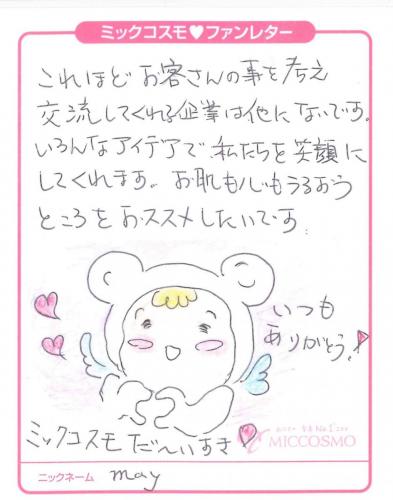 ミックコスモ♥ファンレター
これほど お客さんの事を考え
交流してくれる企業は他にないです。
いろんなアイデアで 私たちを笑顔に
してくれます。 お肌も心もうるおう
ところをおススメしたいです。
いつも
ありがとう。
ミックコスモ だ〜いすき
MICCOSMO
ニックネーム may